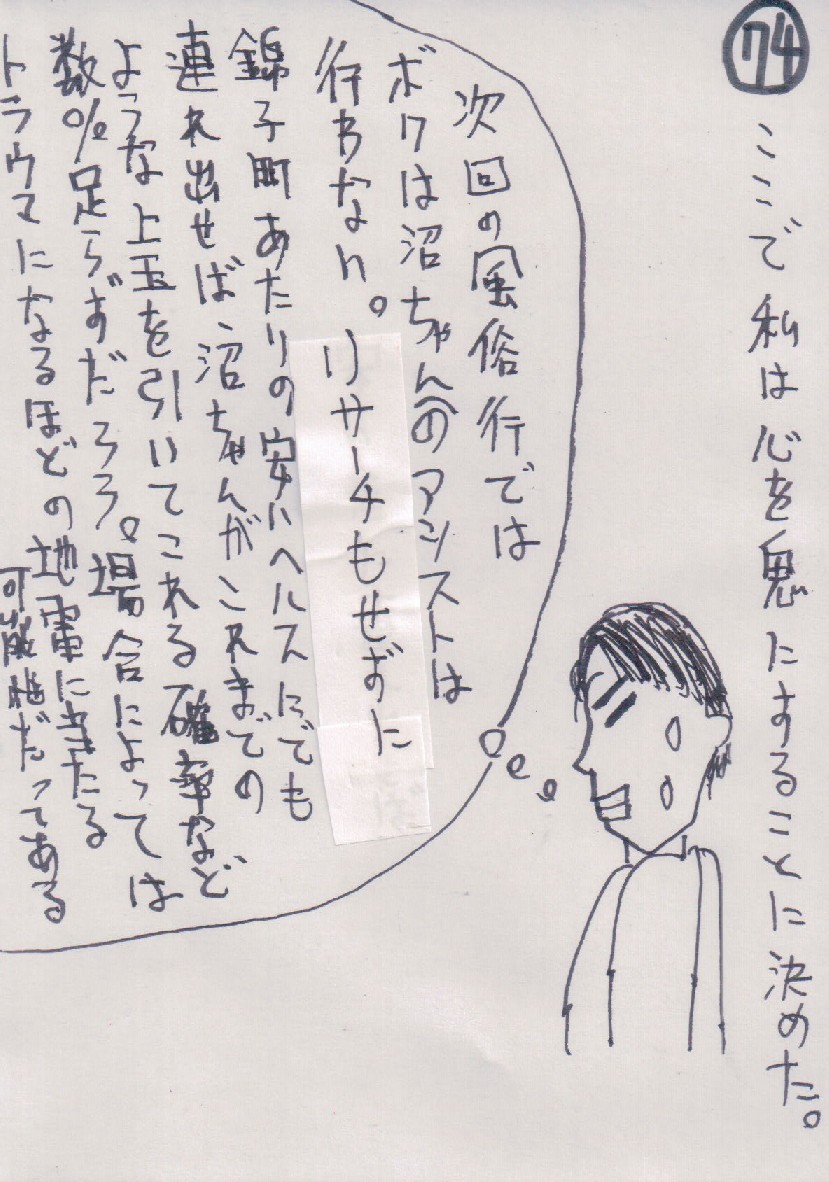 74
ここで私は心を鬼にすることに決めた。
次回の風俗行では
ボクは沼ちゃんへのアシストは
行わない。リサーチもせずに
錦糸町あたりの安いヘルスにでも
連れ出せば、沼ちゃんがこれまでの
ような上玉を引いてこれる確率など
数%足らずだろう。場合によっては
トラウマになるほどの地雷に当たる
可能性だってある